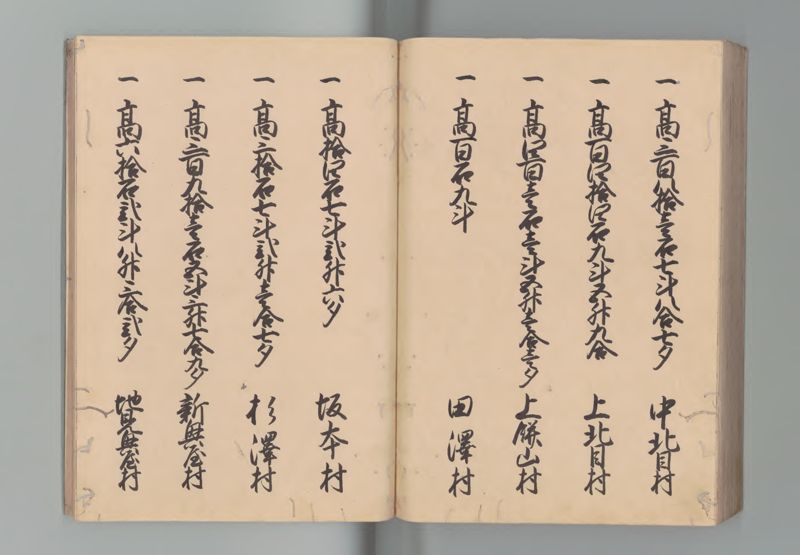 一 高三百八拾壱石七斗八合七夕 中北目村
一 高百四拾四石九斗五升九合 上北目村
一 高四百壱石壱斗五升壱合壱夕 上餅山村
一 高百石九斗 田澤村
一 高拾四石七斗弐升六夕 坂本村
一 高三拾石七斗弐升壱合七夕 杉澤村
一 高三百九拾壱石五斗三升七合九夕 新興屋村
一 高六拾石弐斗八升三合弐夕 地見興屋村